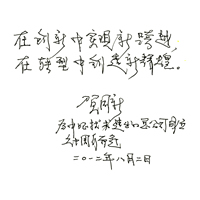 在创新中实现新跨越，
在转型中创造新辉煌。
贺国新
为中 技术进出口总公司
六十周年而题
二〇一二年八月二日